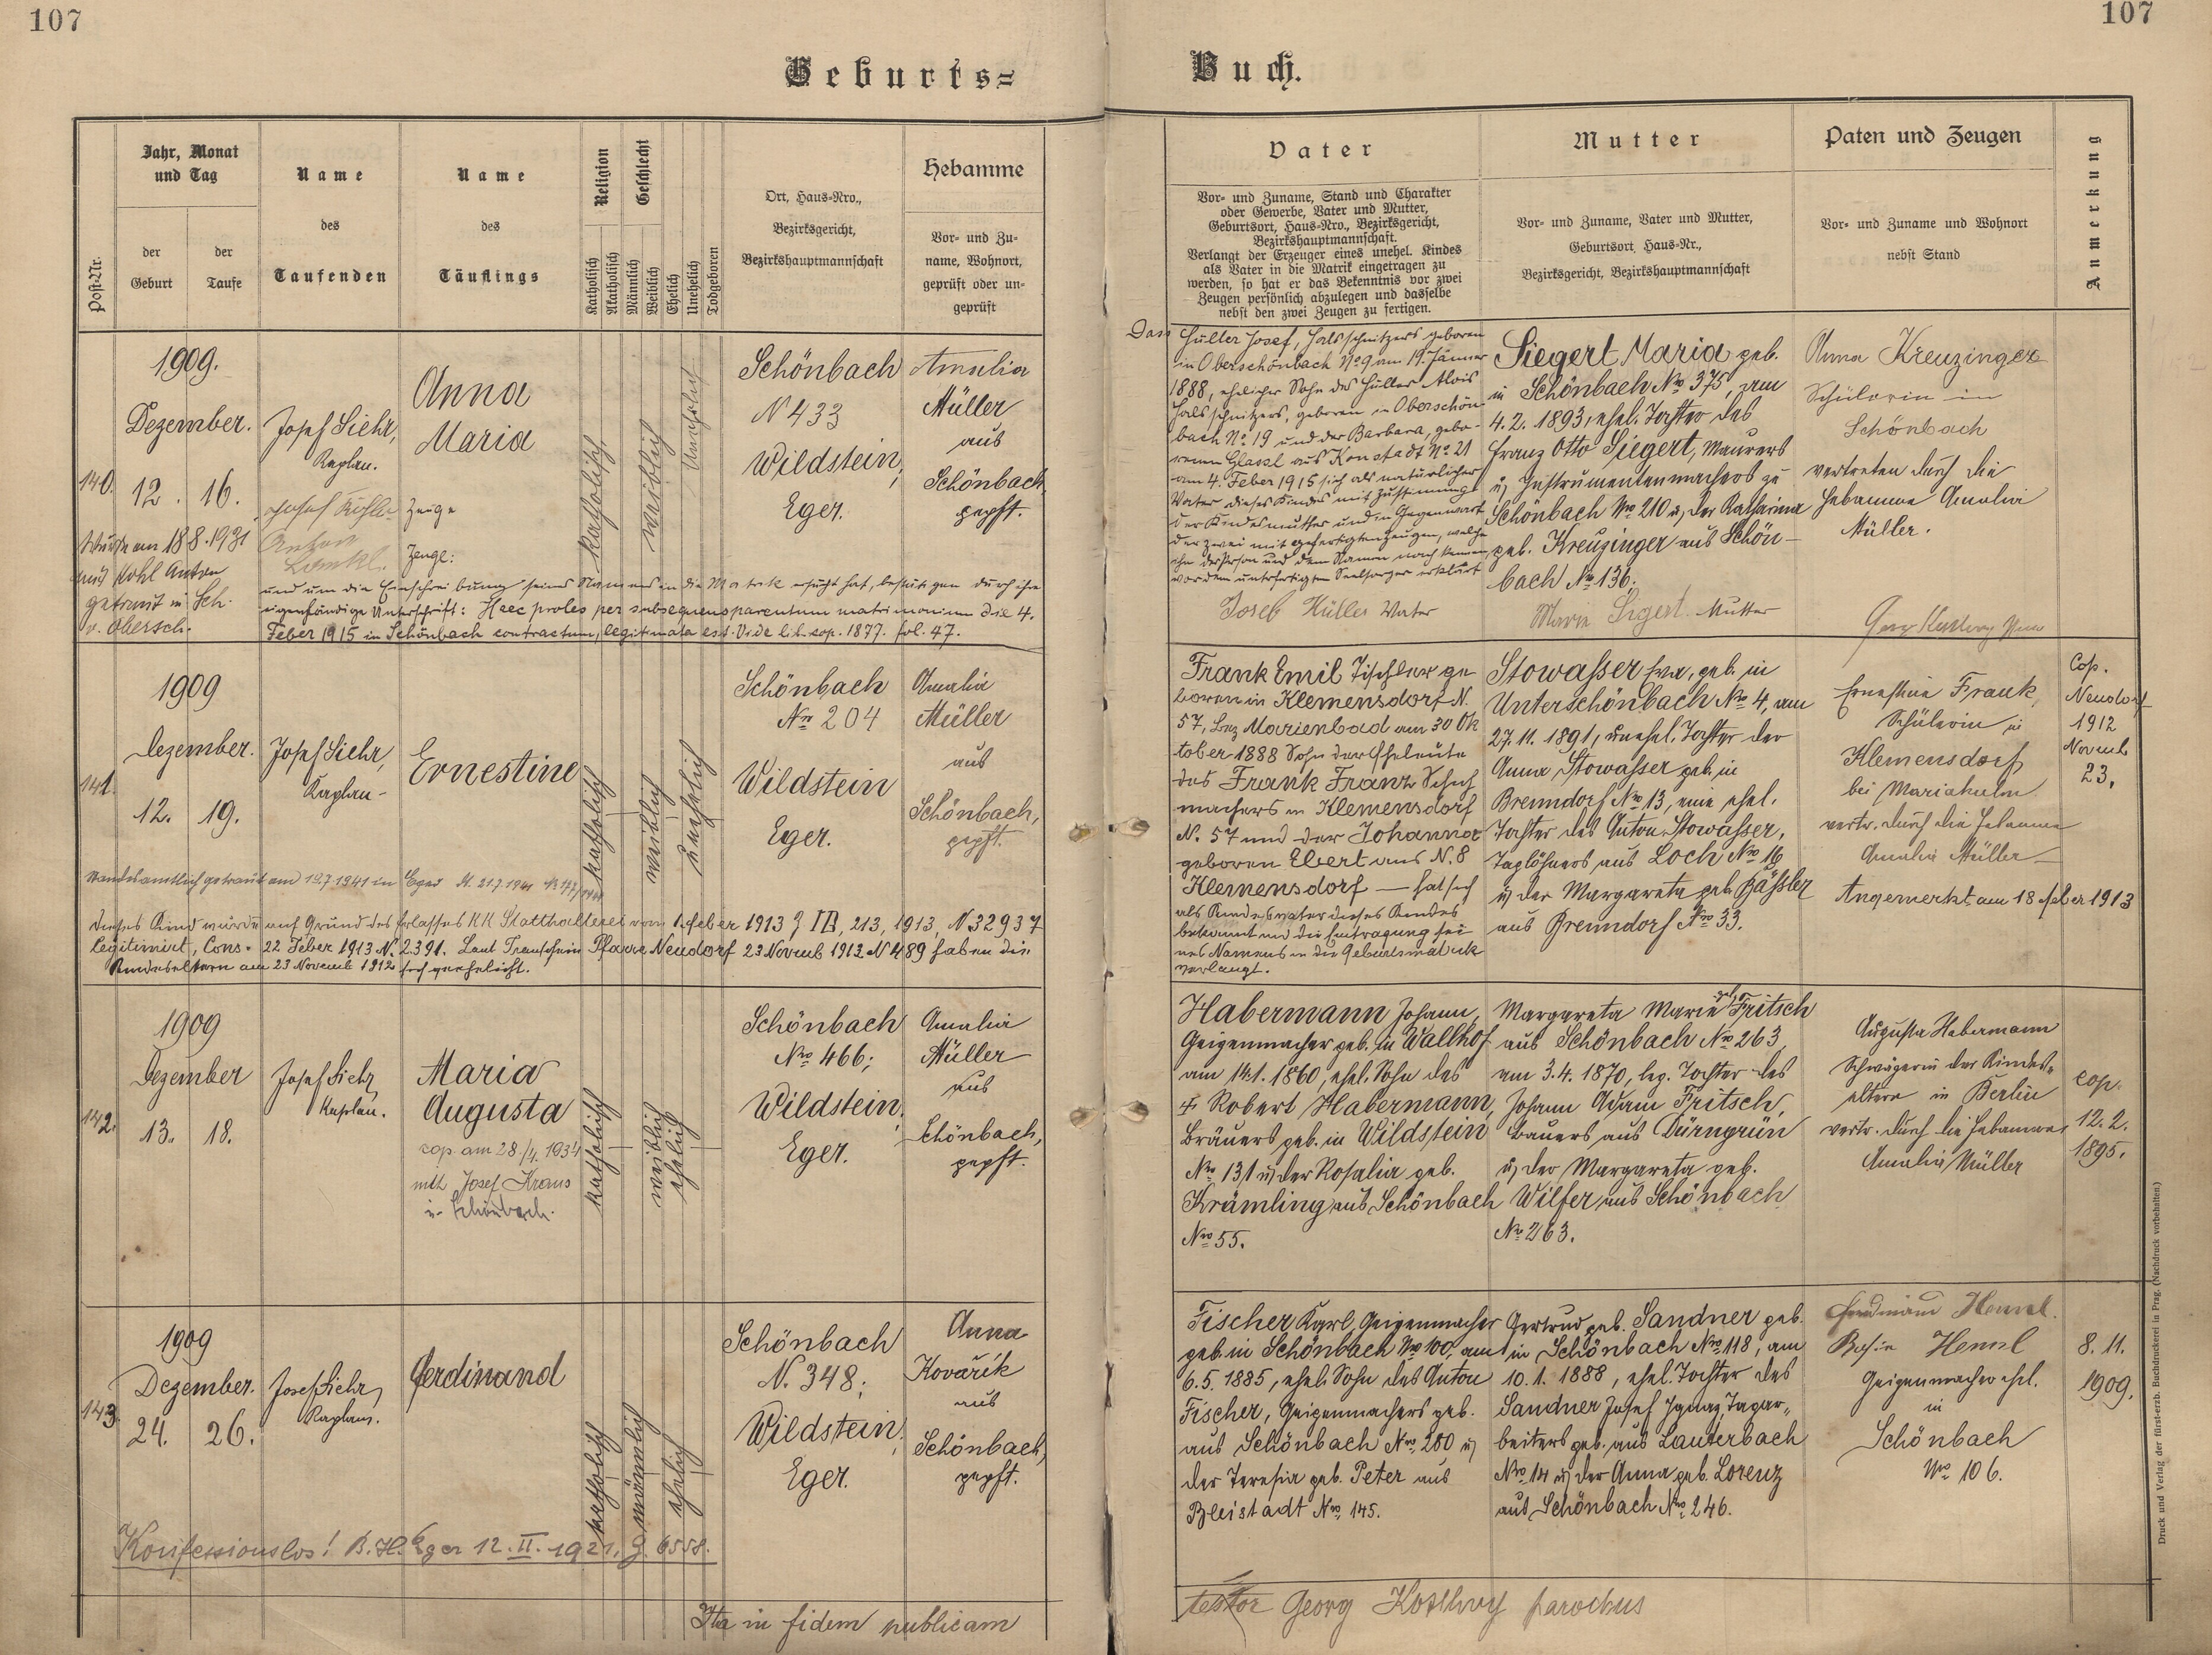 107
107
Geburts=
Buch.
Jahr, Monat
und Tag
der
Geburt
der
Taufe
Post-Nr.
Name
des
Taufenden
Name
des
Täuflings
Religion
Katholisch
Akatholisch
Geschlecht
Männlich
Weiblich
Ehelich
Unehelich
Todgeboren
Ort, Haus-Nro.,
Bezirksgericht,
Bezirkshauptmannschaft
Hebamme
Vor- und Zu-
name, Wohnort,
geprüft oder un-
geprüft
Vater
Vor- und Zuname, Stand und Charakter
oder Gewerbe, Vater und Mutter,
Geburtsort, Haus-Nro., Bezirksgericht,
Bezirkshauptmannschaft.
Verlangt der Erzeuger eines unehel. Kindes
als Vater in die Matrik eingetragen zu
werden, so hat er das Bekenntnis vor zwei
Zeugen persönlich abzulegen und dasselbe
nebst den zwei Zeugen zu fertigen.
Mutter
Vor- und Zuname, Vater und Mutter,
Geburtsort, Haus-Nr.,
Bezirksgericht, Bezirkshauptmannschaft
Paten und Zeugen
Vor- und Zuname und Wohnort
nebst Stand
Anmerkung
1909.
Dezember.
140.
12.
16.
Josef Siehr,
Kaplan.
Zeuge
Anton
Zeuge:
Anna
Maria
katholisch
weiblich
Unehelich
Schönbach
N 433
Wildstein,
Eger.
Amalia
Müller
aus
Schönbach
gepft.
Wurde am 18 8. 1931
mit Kohl Anton
getraut in Sch.
v. Obersch.
und um die Einschreibung seines Namens in die Matrik ersucht hat, bestätigen durch ihre
eigenhändige Unterschrift: Haec proles per subsequens parentum matrimonium die 4.
Feber 1915 in Schönbach contractum, legitimata est. Vide lib. cop. 1877. fol. 47.
Hüller Josef, Halsschnitzers geboren
in Oberschönbach No 9 am 19. Jänner
1888, ehelicher Sohn des Hüller Alois
Halsschnitzers, geboren in Oberschön-
bach No 19 und der Barbara, gebo-
renen Glassl aus Konstadt No 21
am 4. Feber 1915 sich als natürlicher
Vater dieses Kindes mit Zustimmung
der Kindesmutter und in Gegenwart
der zwei mit gefertigten Zeugen, welche
ihn der Person und dem Namen nach kennen,
vor dem unterfertigten Seelsorger erklärt
Josef Hüller Vater
Siegert Maria geb.
in Schönbach No 375, am
4. 2. 1893, ehel. Tochter des
Franz Otto Siegert, Maurers
u. Instrumentenmachers zu
Schönbach No 210 u. der Katharina
geb. Kreuzinger aus Schön-
bach No 136.
Marie Sigert Mutter
Anna Kreuzinger
Schülerin in
Schönbach
vertreten durch die
Hebamme Amalia
Müller.
1909
Dezember.
141.
12.
19.
Josef Siehr,
Kaplan.
Ernestine
katholisch
weiblich
unehelich
Schönbach
No 204
Wildstein
Eger.
Amalia
Müller
aus
Schönbach,
gepft.
Standesamtlich getraut am 19.7.1941 in Eger
Dieses Kind wurde auf Grund des Erlasses KK Statthalterei vom 1. Feber 1913 Z III, 213, 1913, N. 32937
legitimiert, Cons. 22 Feber 1913 N. 2391. Laut Trauschein Pfarre Neudorf 23 Novemb 1912 N 489 haben die
Kindeseltern am 23 Novemb 1912 sich verehelicht.
Frank Emil Tischler ge
boren in Klemensdorf N.
57, Bez Marienbad am 30 Ok
tober 1888 Sohn der Eheleute
des Frank Franz Schuh
machers in Klemensdorf
N. 57 und der Johanna
geboren Ebert aus N. 8
Klemensdorf — hat sich
als Kindesvater dieses Kindes
bekannt und die Eintragung sei
nes Namens in die Geburtsmatrik
verlangt.
Stowasser Eva, geb. in
Unterschönbach No 4, am
27. 11. 1891, unehel. Tochter der
Anna Stowasser geb. in
Brenndorf No 13, eine ehel.
Tochter des Anton Stowasser,
Taglöhners aus Loch No 16
u. der Margareta geb. Bäßler
aus Brenndorf No 33.
Ernestine Frank,
Schülerin in
Klemensdorf
bei Mariakulm
vertr. durch die Hebamme
Amalia Müller
Angemerkt am 18 Feber 1913
Cop.
Neudorf
1912
Novemb
23.
1909
Dezember
142.
13.
18.
Josef Siehr,
Kaplan.
Maria
Augusta
cop. am 28./4. 1934
mit Josef Kraus
in Schönbach.
katholisch
weiblich
ehelich
Schönbach
No 466;
Wildstein,
Eger.
Amalia
Müller
aus
Schönbach,
gepft.
Habermann Johann,
Geigenmacher geb. in Wallhof
am 14.1.1860, ehel. Sohn des
Robert Habermann,
Bräuers geb. in Wildstein
No 131 u. der Rosalia geb.
Krämling aus Schönbach
No 55.
Margareta Marie geb. Fritsch
aus Schönbach No 263,
am 3. 4. 1870, leg. Tochter des
Johann Adam Fritsch,
Bauers aus Dürngrün
u. der Margareta geb.
Wilfer aus Schönbach
No 263.
Augusta Habermann
Schwägerin der Kindes-
eltern in Berlin
vertr. durch die Hebamme
Amalia Müller
cop.
12. 2.
1895.
1909
Dezember.
143.
24.
26.
Josef Siehr,
Kaplan.
Ferdinand
katholisch
männlich
ehelich
Schönbach
N. 348;
Wildstein,
Eger.
Anna
Kovařik
aus
Schönbach,
gepft.
Konfessionslos! B.H. Eger 12. II. 1921. Z. 6558.
Fischer Karl, Geigenmacher
geb. in Schönbach No 100, am
6. 5. 1885, ehel. Sohn des Anton
Fischer, Geigenmachers geb.
aus Schönbach No 200 u.
der Theresia geb. Peter aus
Bleistadt No 145.
Gertrud geb. Sandner geb.
in Schönbach No 118, am
10. 1. 1888, ehel. Tochter des
Sandner Josef Ignaz, Tagar-
beiters geb. aus Lauterbach
No 14 u. der Anna geb. Lorenz
aus Schönbach No 246.
Ferdinand
Geigenmacher ehel.
in
Schönbach
No 106.
8. 11.
1909.
Ita in fidem publicam
testor Georg Kosthvy parochus
Druck und Verlag der fürst-erzb. Buchdruckerei in Prag. (Nachdruck vorbehalten)